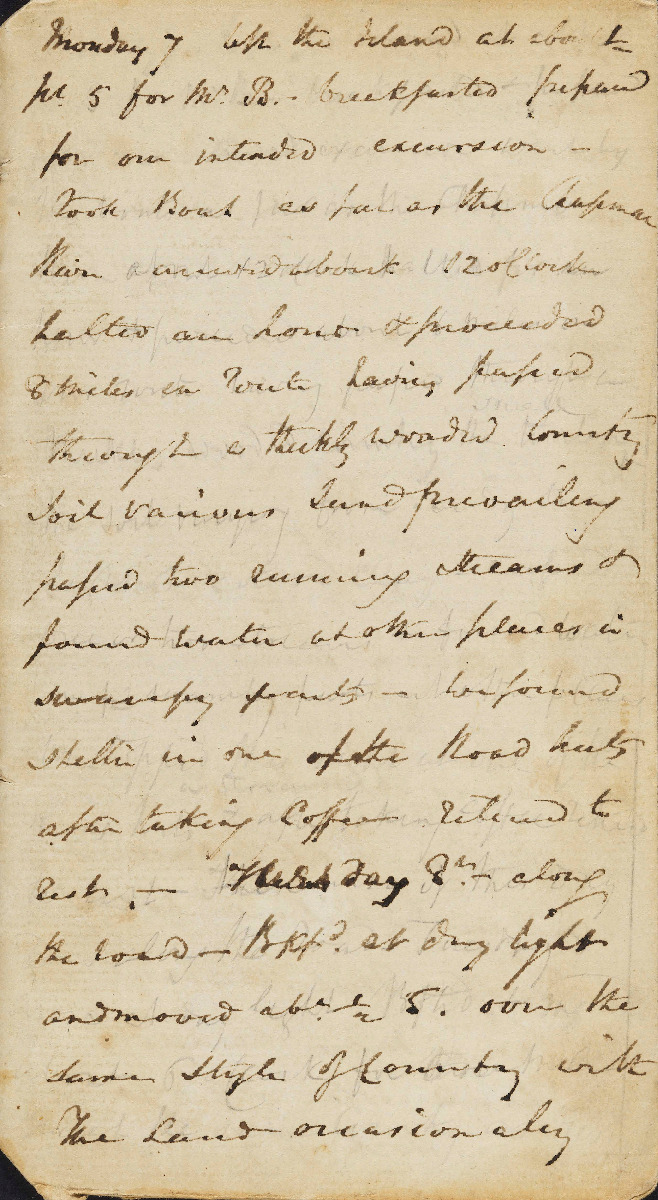 Monday 7 left the Island at about ½
pt. 5 for Mr. B. - breakfasted prepared
for our intended excursion -
Took Boat as far as the Chapman
River arrived about 12 o'Clock
halted an hour & proceeded
8 miles en route having passed
through a thickly wooded Country
Soil various Sand prevailing
passed two running streams &
found water at other places in
swampy parts - we found
shelter in one of the Road huts
after taking Coffee retired to
rest. - Tuesday 8th. - along
the road - Bkftd. at day light
and moved abt. ½ 5. over the
same style of Country with
The Land occasionaly